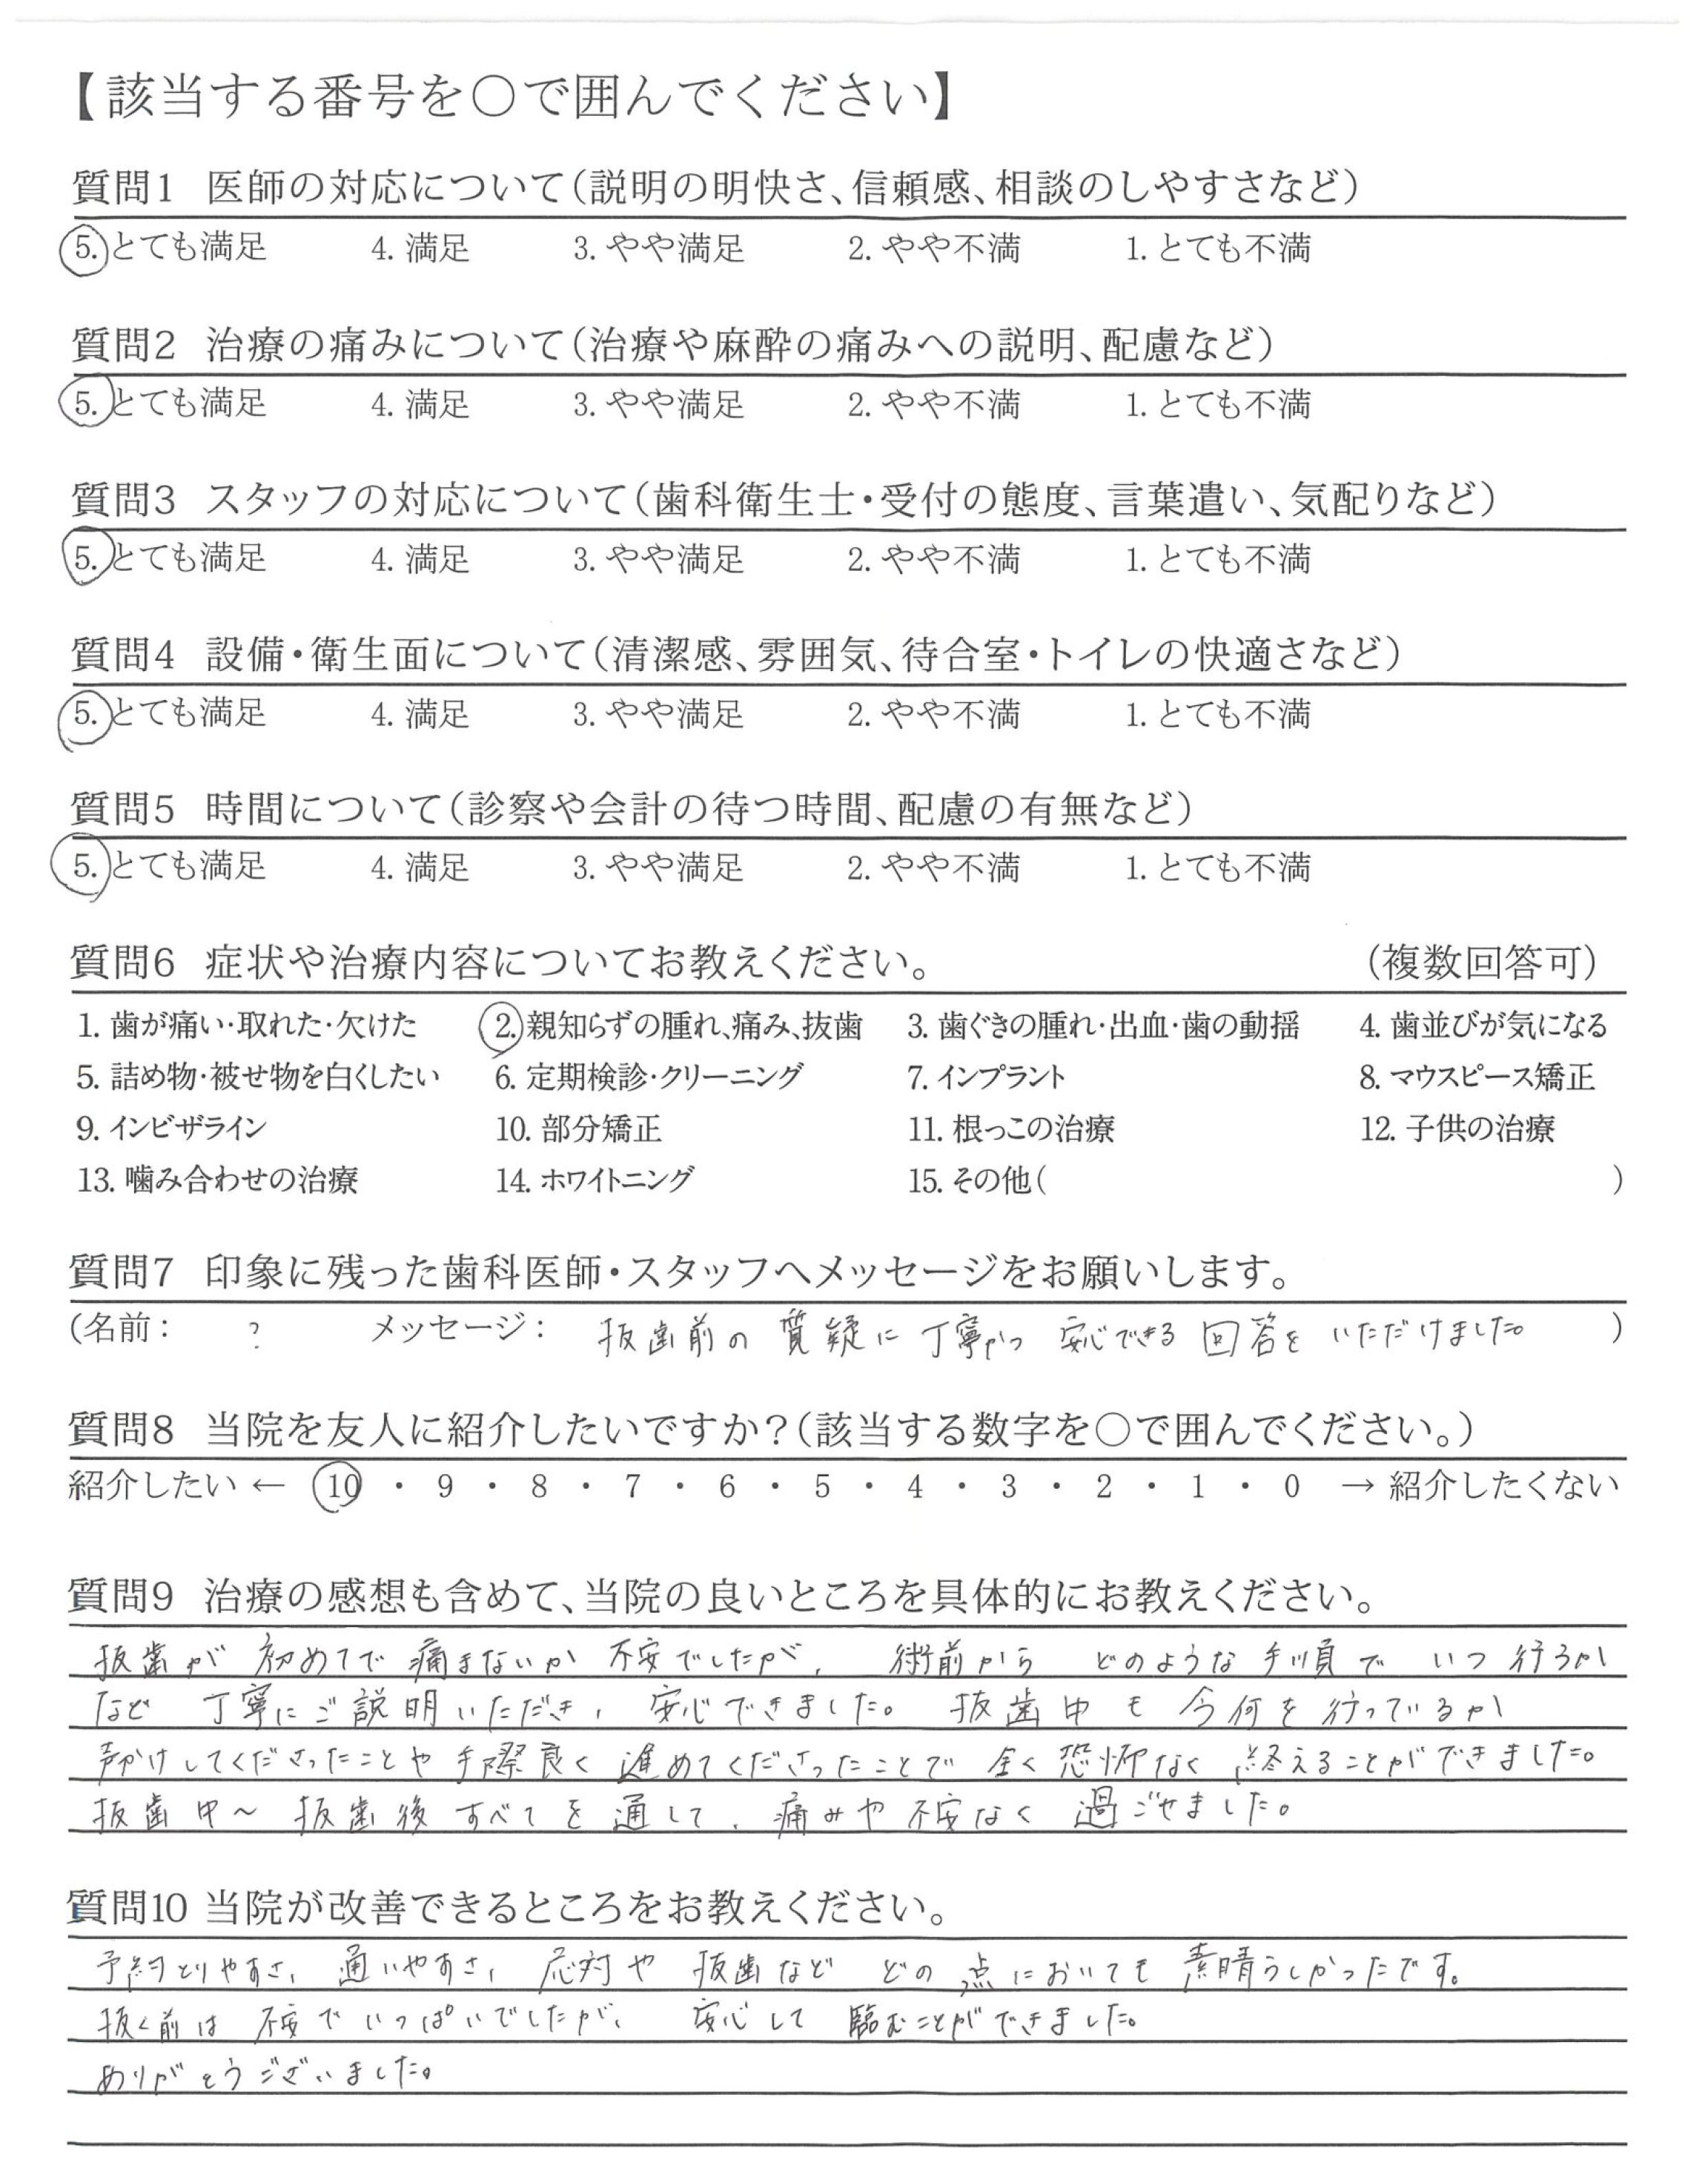 【該当する番号を○で囲んでください】
質問1 医師の対応について(説明の明快さ、信頼感、相談のしやすさなど)
5. とても満足 4. 満足 3. やや満足 2. やや不満 1. とても不満
質問2 治療の痛みについて(治療や麻酔の痛みへの説明、配慮など)
5. とても満足 4. 満足 3. やや満足 2. やや不満 1. とても不満
質問3 スタッフの対応について(歯科衛生士・受付の態度、言葉遣い、気配りなど)
5. とても満足 4. 満足 3. やや満足 2. やや不満 1. とても不満
質問4 設備・衛生面について(清潔感、雰囲気、待合室・トイレの快適さなど)
5. とても満足 4. 満足 3. やや満足 2. やや不満 1. とても不満
質問5 時間について(診察や会計の待つ時間、配慮の有無など)
5. とても満足 4. 満足 3. やや満足 2. やや不満 1. とても不満
質問6 症状や治療内容についてお教えください。 (複数回答可)
1. 歯が痛い・取れた・欠けた 2. 親知らずの腫れ、痛み、抜歯 3. 歯ぐきの腫れ・出血・歯の動揺 4. 歯並びが気になる
5. 詰め物・被せ物を白くしたい 6. 定期検診・クリーニング 7. インプラント 8. マウスピース矯正
9. インビザライン 10. 部分矯正 11. 根っこの治療 12. 子供の治療
13. 噛み合わせの治療 14. ホワイトニング 15. その他( )
質問7 印象に残った歯科医師・スタッフへメッセージをお願いします。
(名前: ? メッセージ: 抜歯前の質疑に丁寧かつ安心できる回答をいただけました。 )
質問8 当院を友人に紹介したいですか?(該当する数字を○で囲んでください。)
紹介したい ← 10 ・ 9 ・ 8 ・ 7 ・ 6 ・ 5 ・ 4 ・ 3 ・ 2 ・ 1 ・ 0 → 紹介したくない
質問9 治療の感想も含めて、当院の良いところを具体的にお教えください。
抜歯が初めてで痛まないか不安でしたが、術前からどのような手順でいつ行うか
など丁寧にご説明いただき、安心できました。抜歯中も今何を行っているか
声かけしてくださったことや手際良く進めてくださったことで全く恐怖なく終えることができました。
抜歯中～抜歯後すべてを通して、痛みや不安なく過ごせました。
質問10 当院が改善できるところをお教えください。
予約とりやすさ、通いやすさ、応対や抜歯などどの点においても素晴らしかったです。
抜く前は不安でいっぱいでしたが、安心して臨むことができました。
ありがとうございました。